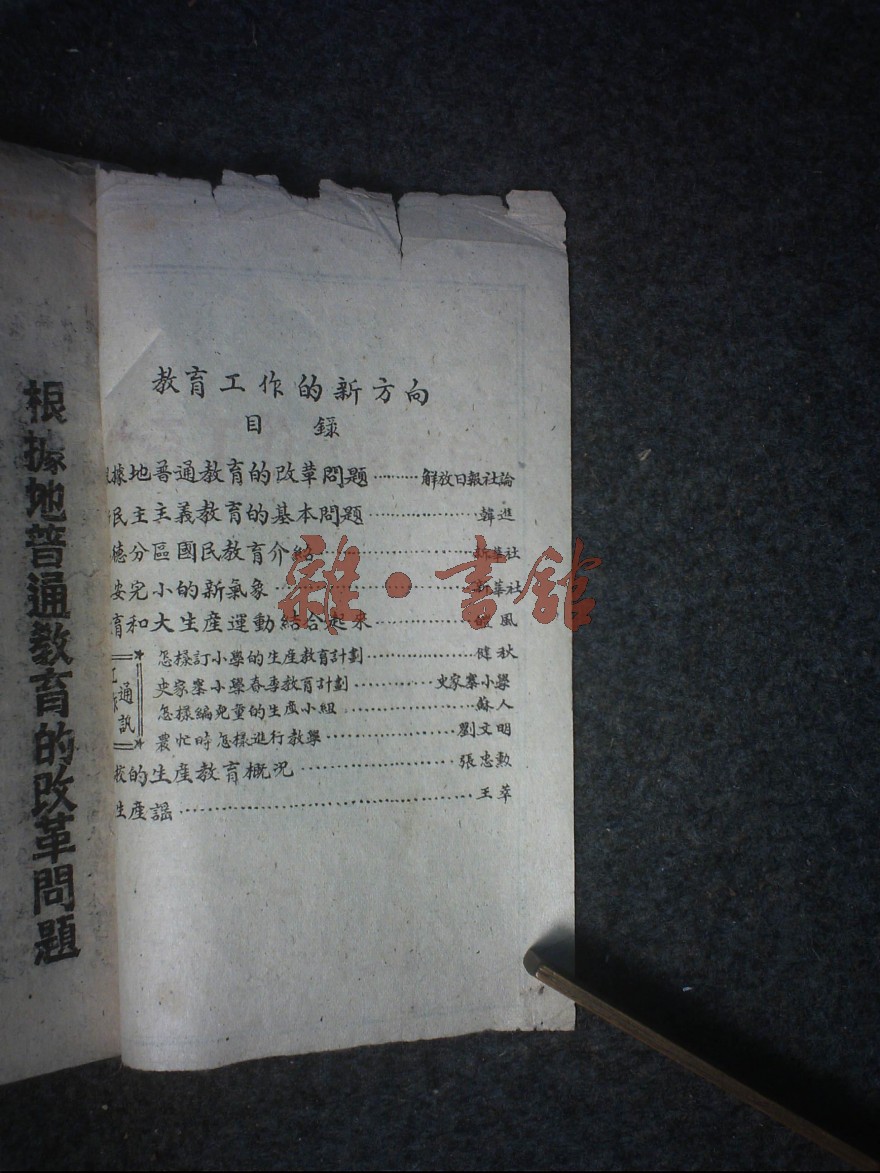 教育工作的新方向
目 錄
據地普通教育的改革問題………解放日報社論
民主主義教育的基本問題………韓進
德分區國民教育介紹………新華社
安完小的新氣象………新華社
育和大生產運動結合起來………風
工作通訊
怎樣訂小學的生產教育計劃………健秋
史家寨小學春季教育計劃………史家寨小學
怎樣編兒童的生產小組………蘇人
農忙時怎樣進行教學………劉文明
校的生產教育概況………張忠勲
生產謡………王苹
根據地普通教育的改革問題
雜·書館